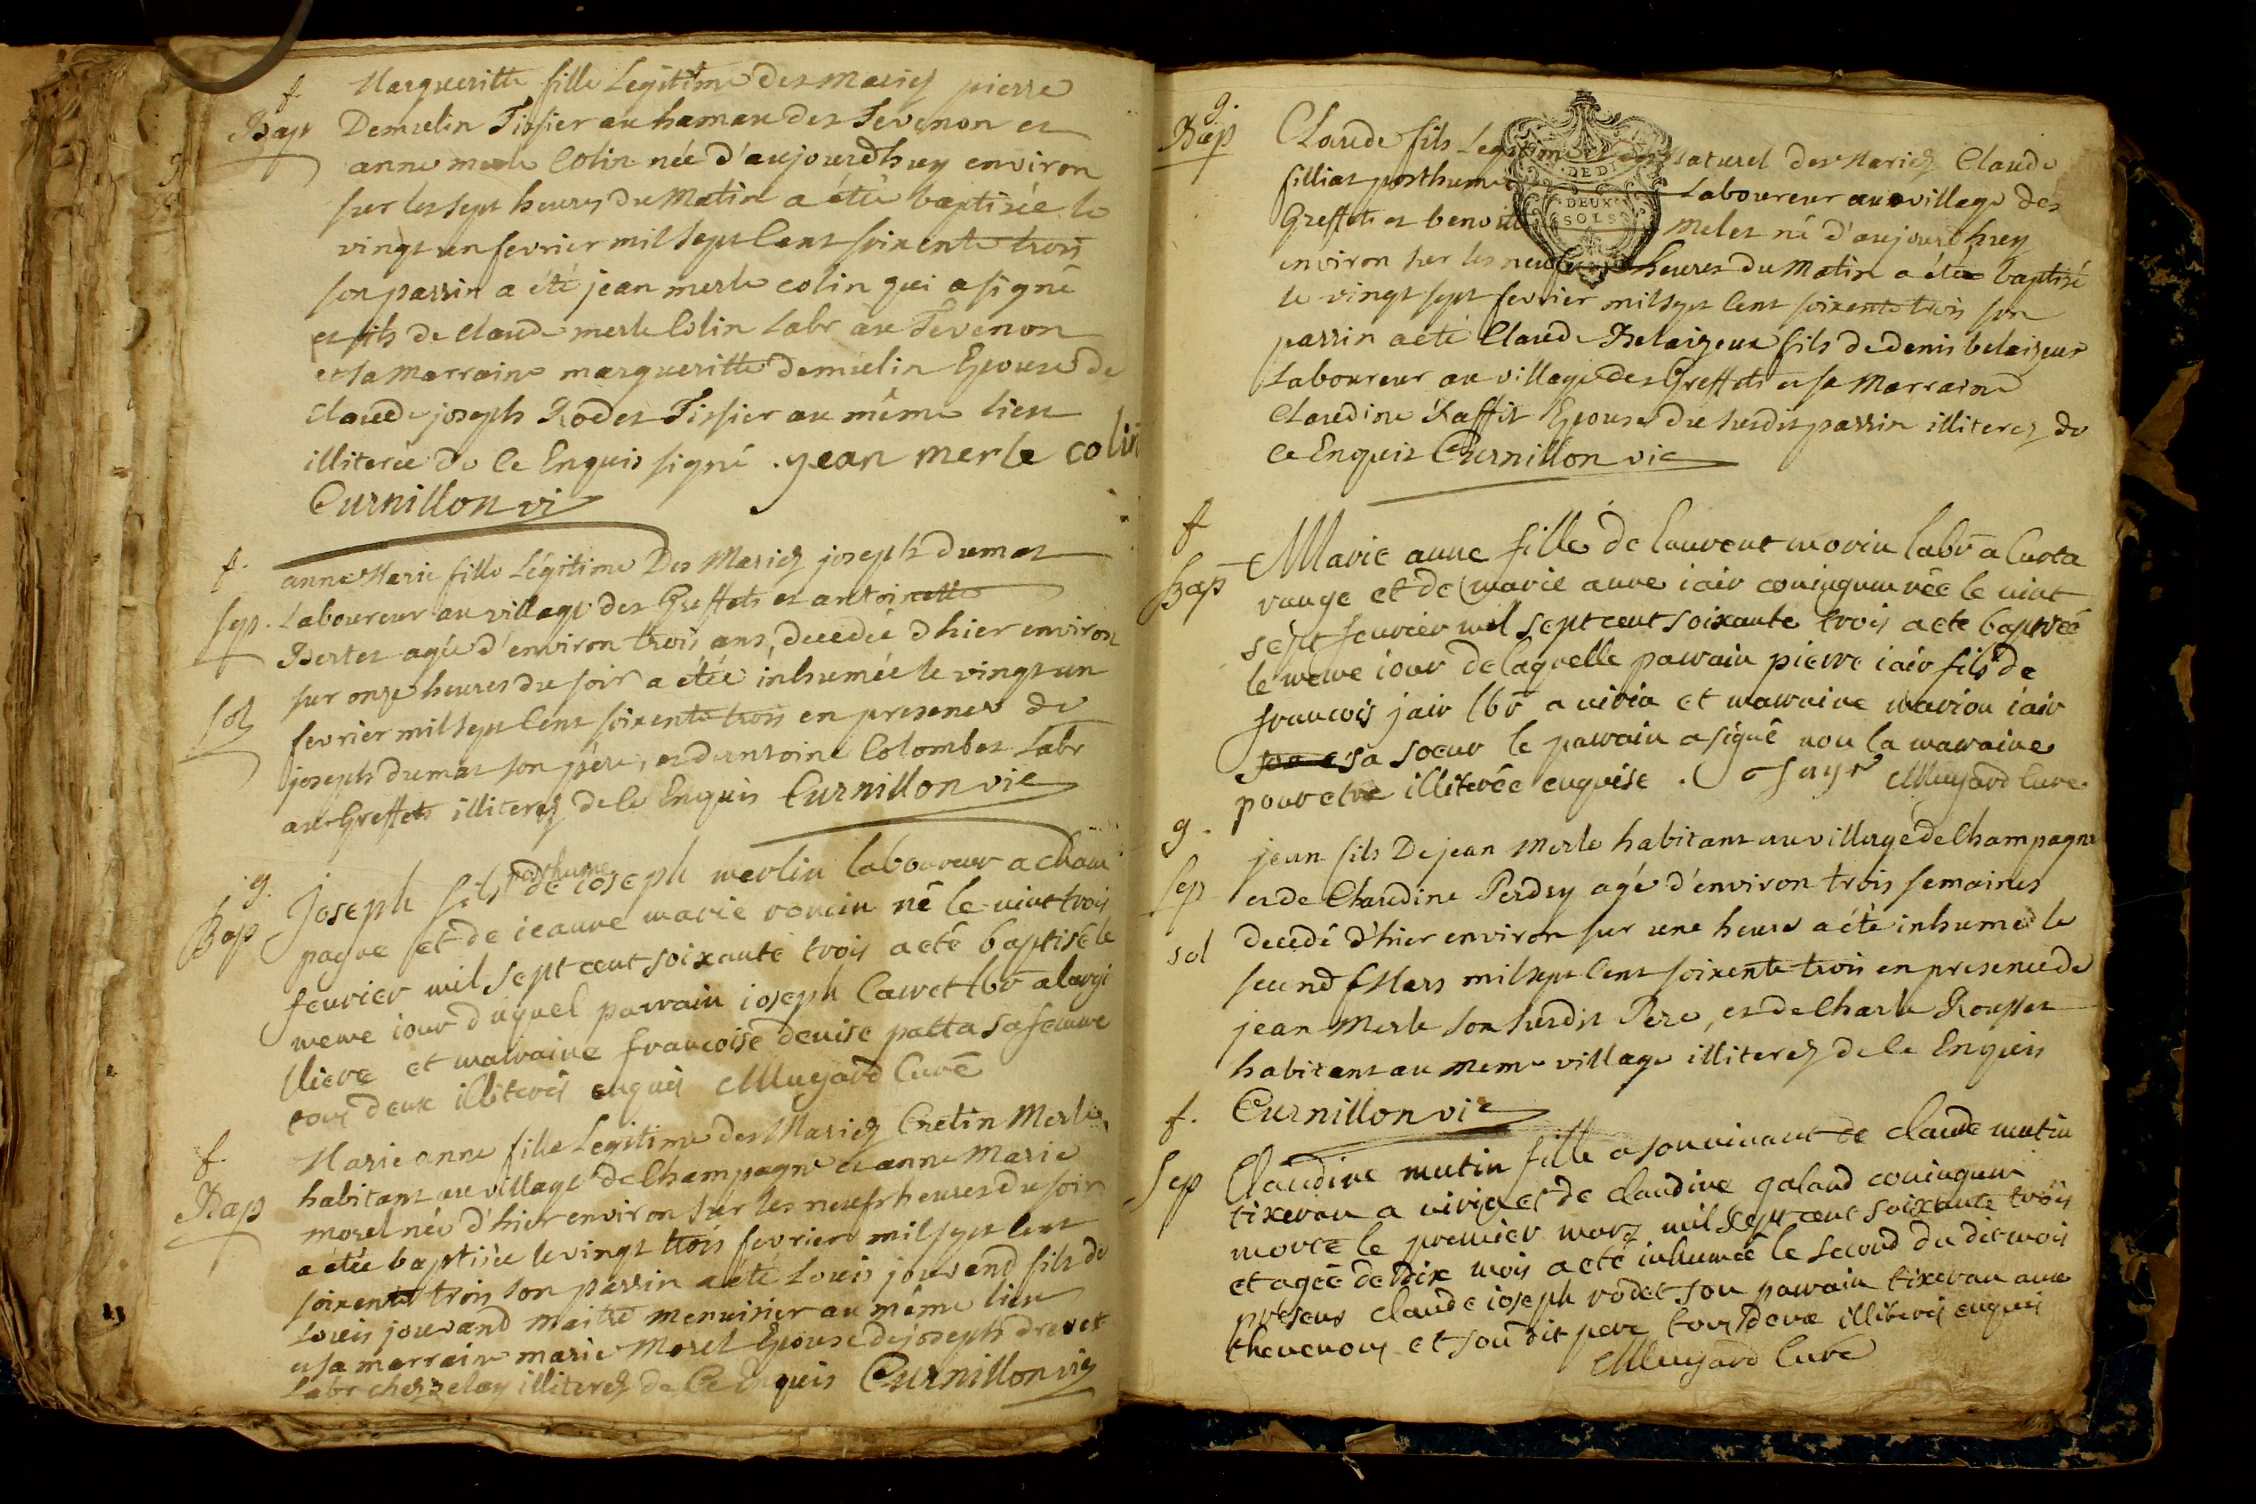 f.
Bap
Margueritte fille Legitime des Mariez pierre
Demielin Tissier au hamau des Tevenon et
anne merle Colin née d'aujourdhuy environ
sur les sept heures du Matin a étée baptisée le
vingt un fevrier mil sept Cent soixente trois
son parrin a été jean merle colin qui a signé
et fils de claude merle Colin Labr au Tevenon
et sa Marraine margueritte demielin Epouse de
Claude joseph Rodet Tissier au même lieu
illiterée de Ce Enquis signé . jean merle colin
Curnillon vi
f.
sep.
sol
anne Marie fille Légitime Des Mariez joseph dumas
Laboureur au village des Greffets et antoinette
Bertet agée d'environ trois ans, decedée d'hier environ
sur onze heures du soir a étée inhumée le vingt un
fevrier mil sept Cent soixente trois en presence de
joseph dumas son père, et d'antoine Colombet Labr
au Greffets illiterez de Ce Enquis Curnillon vic
g.
Bap
posthume
Joseph fils de ioseph merlin laboureur a cham
pagne et de ieanne marie roncin né le vint trois
feurier mil sept cent soixante trois a eté baptisé le
meme iour duquel parrain ioseph Carret lbr a largi
lliere et marraine francoise denise patta sa femme
tous deux illiterés enquis Muyard Curé
f.
Bap
Marie anne fille Legitime des Mariez Cretin Merle
habitant au village de Champagne et anne Marie
morel née d'hier environ sur les neufs heures du soir
a étée baptisée le vingt trois fevrier mil sept Cent
soixente trois son parrin a été Louis jouvend fils de
Louis jouvand maitre menuisier au même lieu
et sa marraine marie Morel Epouse de joseph drevet
Labr chez zelay illiterez de Ce Enquis Curnillon vic
g.
Bap
Claude fils Legitime et naturel des Mariez Claude
filliat posthume Laboureur au village des
Greffets et benoite Melet né d'aujourdhuy
environ sur les neuf heures du Matin a été baptisé
le vingt sept fevrier mil sept Cent soixente trois son
parrin a eté Claude Belaizeur fils de denis belaizeur
Laboureur au village des Greffets et sa Marraine
Claudine Raffit Epouse du susdit parrin illiterez de
Ce Enquis Curnillon vic
DEUX
SOLS
f
Bap
Marie anne fille de laurent morin labr a Curta
range et de marie anne iair coniugum née le vint
sept feurier mil sept cent soixante trois a eté baptisée
le meme iour de laquelle parrain pierre iair fils de
francois jair lbr a viria et marraine marion iair
son sa soeur le parrain a signé non la marraine
pour etre illiterée enquise . Muyard Cure
g.
sep
sol
jean fils De jean Merle habitant au village de Champagne
et de Claudine Perdry agé d'environ trois semaines
decedé d'hier environ sur une heure a été inhumé le
second Mars mil sept Cent soixente trois en presence de
jean Merle son susdit Pere, et de Charle Rousset
habitant au meme village illiterez de Ce Enquis
Curnillon vic
f.
sep
Claudine mutin fille a son vivant de claude mutin
tixeran a viria et de claudine galand coniugum
morte le premier marz mil sept cent soixante trois
et agée de dix mois a eté inhumée le second du dit mois
presens claude ioseph rodet son parrain tixeran aux
thevenons et son dit pere tous deux illiterés enquis
Muyard Curé